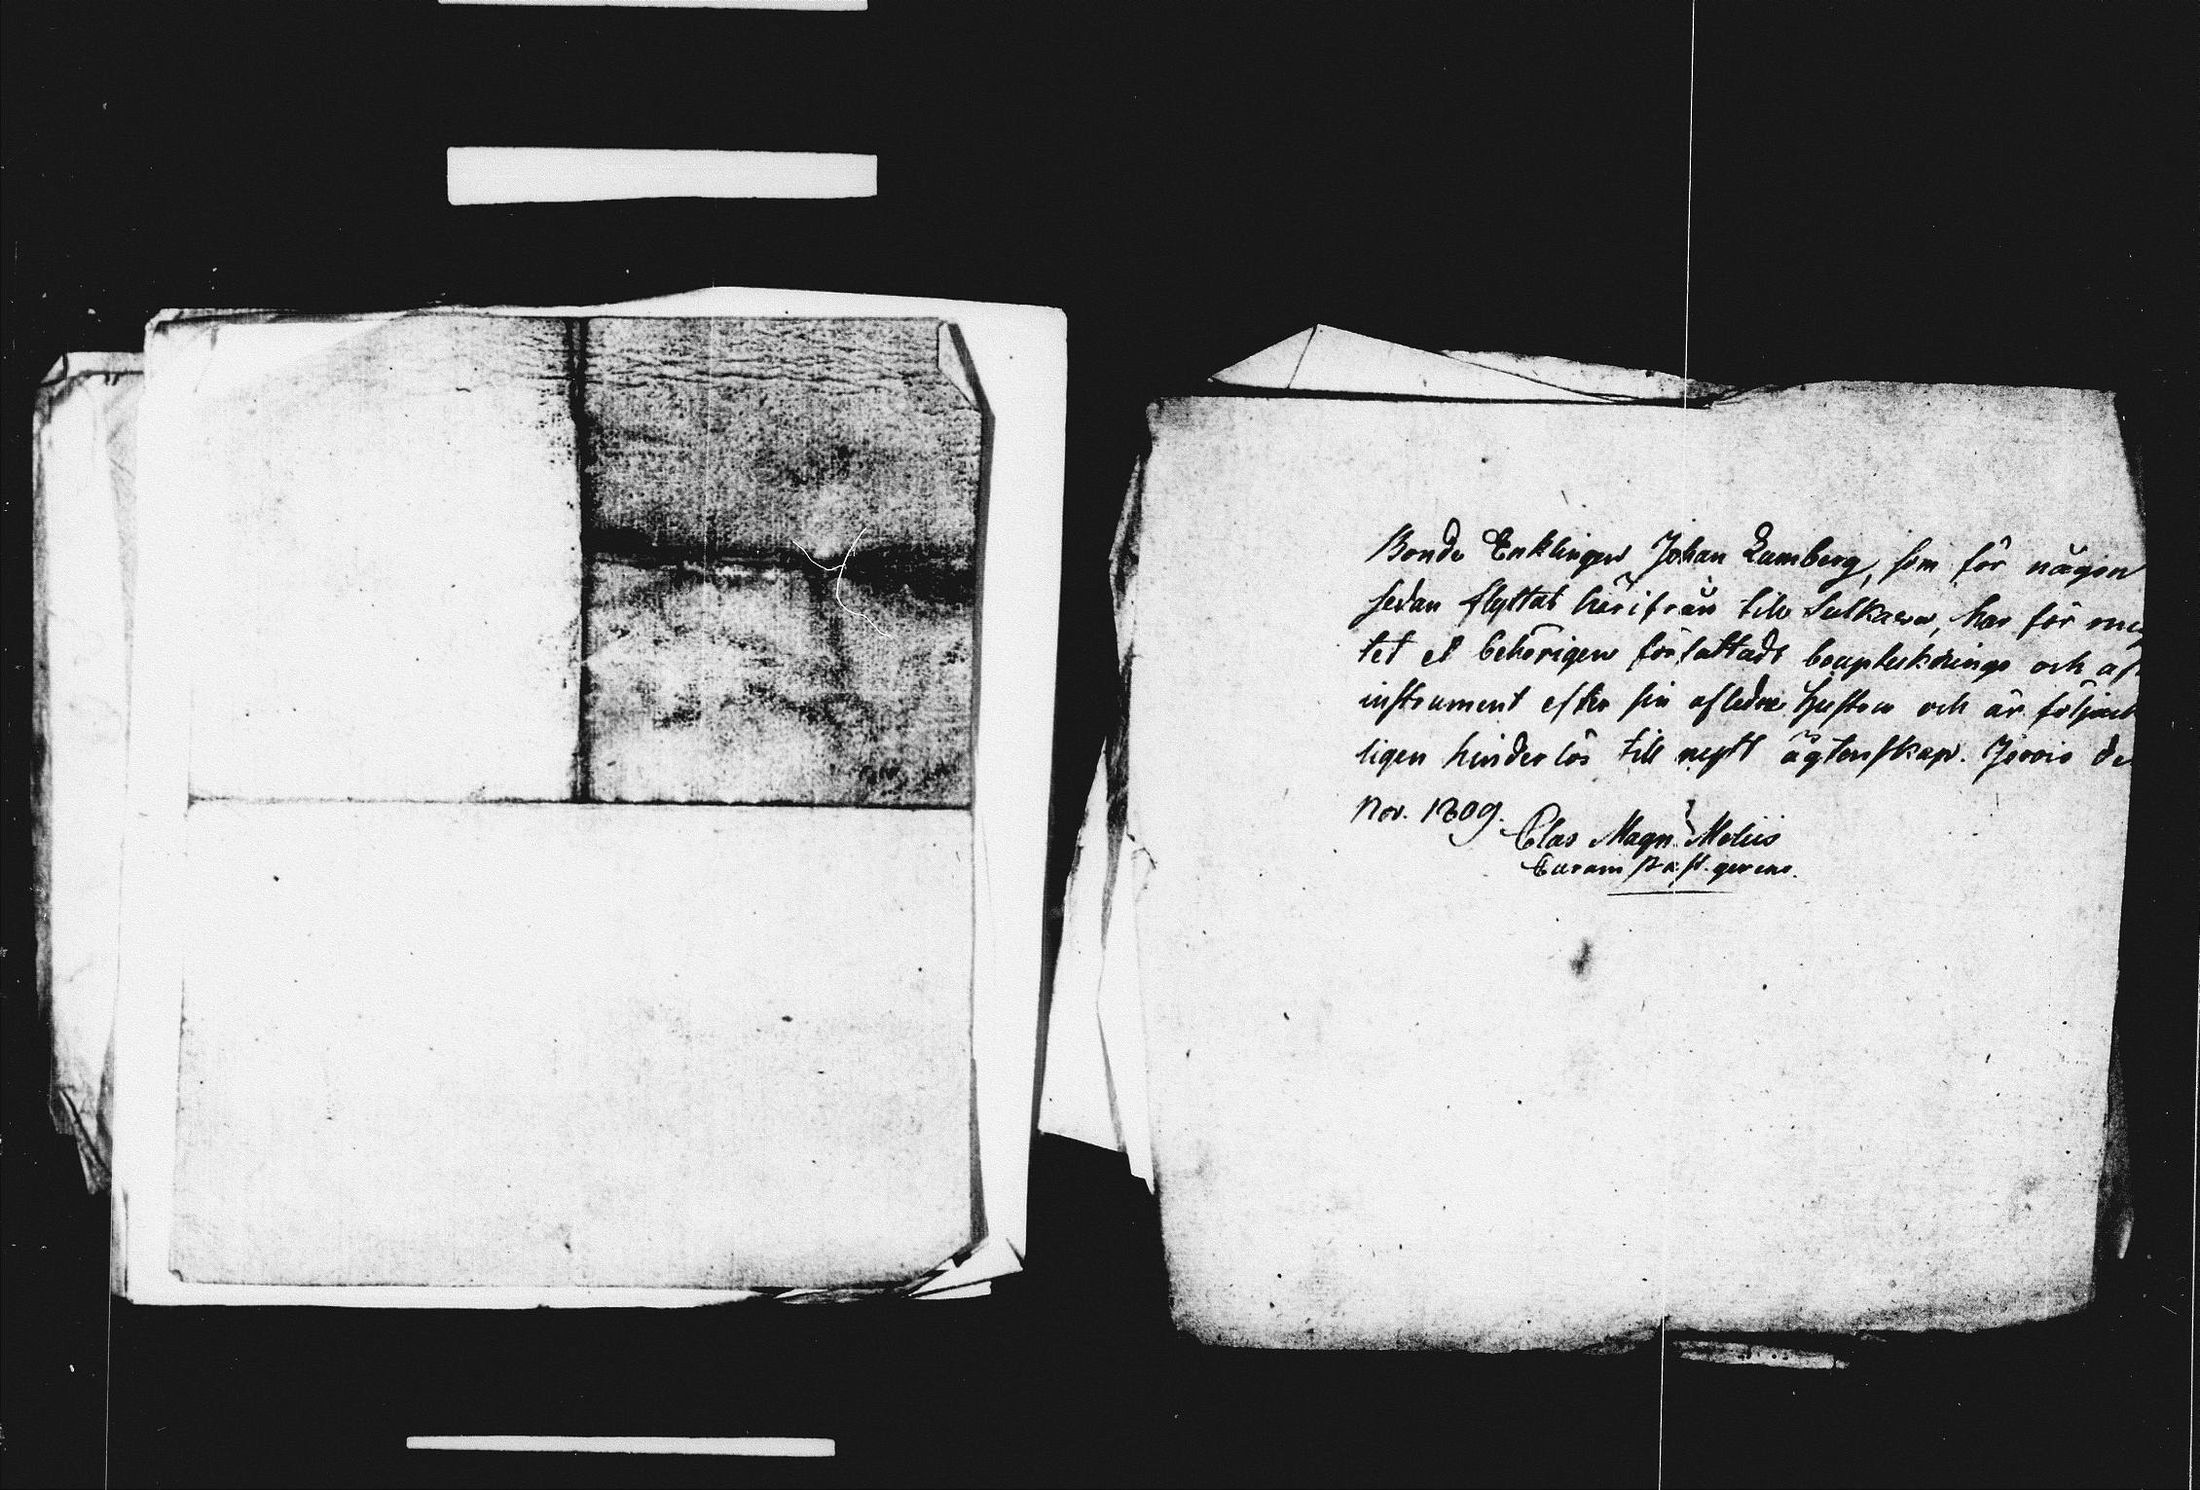 Bonde Enklingen Johan Lamberg, som för någon
sedan flyttat härifrån till Sulkava, har för mig
tet et behörigen författadt boupteknings och af
instrument efter sin afledne hustru och är följackt
ligen hinderlös till nytt ägtenskap. Jorois de
Nov. 1809.
Clas Magn. Moliis
Curam Past. gerens.